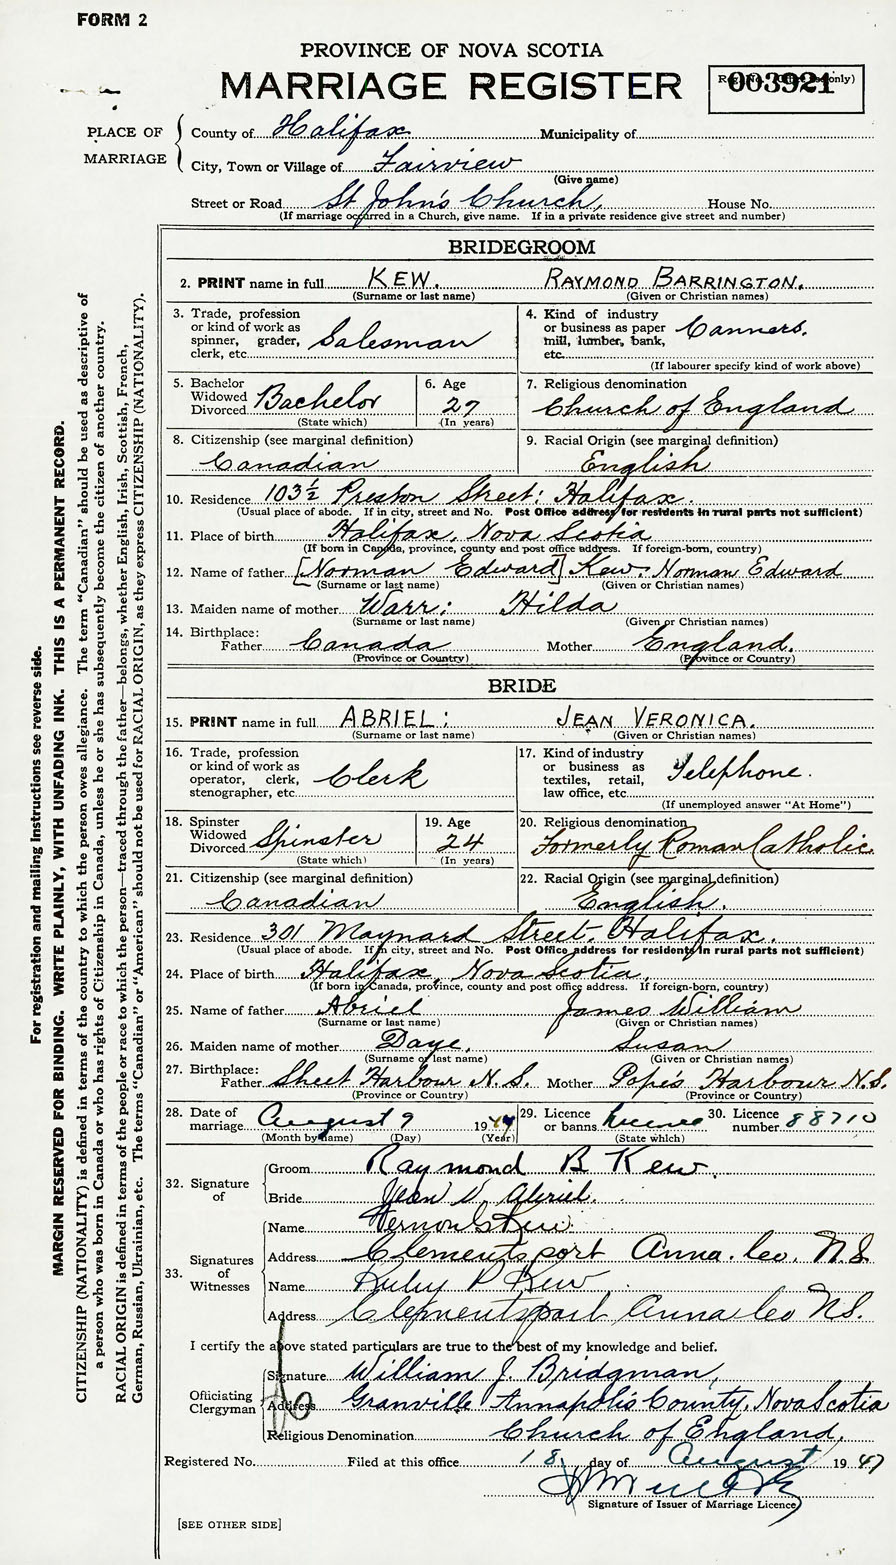 FORM 2
PROVINCE OF NOVA SCOTIA
MARRIAGE REGISTER
003921
PLACE OF MARRIAGE
County of Halifax Municipality of
City, Town or Village of Fairview
(Give name)
Street or Road St John's Church, House No.
(If marriage occurred in a Church, give name. If in a private residence give street and number)
BRIDEGROOM
2. PRINT name in full KEW. RAYMOND BARRINGTON.
(Surname or last name) (Given or Christian names)
3. Trade, profession or kind of work as spinner, grader, clerk, etc. Salesman
4. Kind of industry or business as paper mill, lumber, bank, etc. Canners.
(If labourer specify kind of work above)
5. Bachelor Widowed Divorced Bachelor
(State which)
6. Age 27
(In years)
7. Religious denomination
Church of England
8. Citizenship (see marginal definition)
Canadian
9. Racial Origin (see marginal definition)
English
10. Residence 103½ Preston Street: Halifax.
(Usual place of abode. If in city, street and No. Post Office address for residents in rural parts not sufficient)
11. Place of birth Halifax, Nova Scotia
(If born in Canada, province, county and post office address. If foreign-born, country)
12. Name of father [Norman Edward] Kew: Norman Edward
(Surname or last name) (Given or Christian names)
13. Maiden name of mother Warr: Hilda
(Surname or last name) (Given or Christian names)
14. Birthplace: Father Canada Mother England.
(Province or Country) (Province or Country)
BRIDE
15. PRINT name in full ABRIEL: JEAN VERONICA.
(Surname or last name) (Given or Christian names)
16. Trade, profession or kind of work as operator, clerk, stenographer, etc. Clerk
17. Kind of industry or business as textiles, retail, law office, etc. Telephone.
(If unemployed answer "At Home")
18. Spinster Widowed Divorced Spinster
(State which)
19. Age 24
(In years)
20. Religious denomination
Formerly Roman Catholic
21. Citizenship (see marginal definition)
Canadian
22. Racial Origin (see marginal definition)
English.
23. Residence 301 Maynard Street. Halifax.
(Usual place of abode. If in city, street and No. Post Office address for residents in rural parts not sufficient)
24. Place of birth Halifax, Nova Scotia
(If born in Canada, province, county and post office address. If foreign-born, country)
25. Name of father Abriel James William
(Surname or last name) (Given or Christian names)
26. Maiden name of mother Daye, Susan
(Surname or last name) (Given or Christian names)
27. Birthplace: Father Sheet Harbour N.S. Mother Pope's Harbour N.S.
(Province or Country) (Province or Country)
28. Date of marriage August 9 19
(Month by name) (Day) (Year)
29. Licence or banns licence
(State which)
30. Licence number 88710
32. Signature of
Groom Raymond B Kew.
Bride Jean V. Abriel.
33. Signatures of Witnesses
Name Vernon Kew
Address Clementsport Anna. Co. N.S
Name Ruby P Kew
Address Clementsport Anna Co N.S.
I certify the above stated particulars are true to the best of my knowledge and belief.
Officiating Clergyman
Signature William J. Bridgman,
Address Granville Annapolis County, Nova Scotia
Religious Denomination Church of England.
Registered No. Filed at this office 18 day of August 1947
Signature of Issuer of Marriage Licence
[SEE OTHER SIDE]
For registration and mailing instructions see reverse side.
MARGIN RESERVED FOR BINDING. WRITE PLAINLY, WITH UNFADING INK. THIS IS A PERMANENT RECORD.
CITIZENSHIP (NATIONALITY) is defined in terms of the country to which the person owes allegiance. The term "Canadian" should be used as descriptive of
a person who was born in Canada or who has rights of Citizenship in Canada, unless he or she has subsequently become the citizen of another country.
RACIAL ORIGIN is defined in terms of the people or race to which the person—traced through the father—belongs, whether English, Irish, Scottish, French,
German, Russian, Ukrainian, etc. The terms "Canadian" or "American" should not be used for RACIAL ORIGIN, as they express CITIZENSHIP (NATIONALITY).